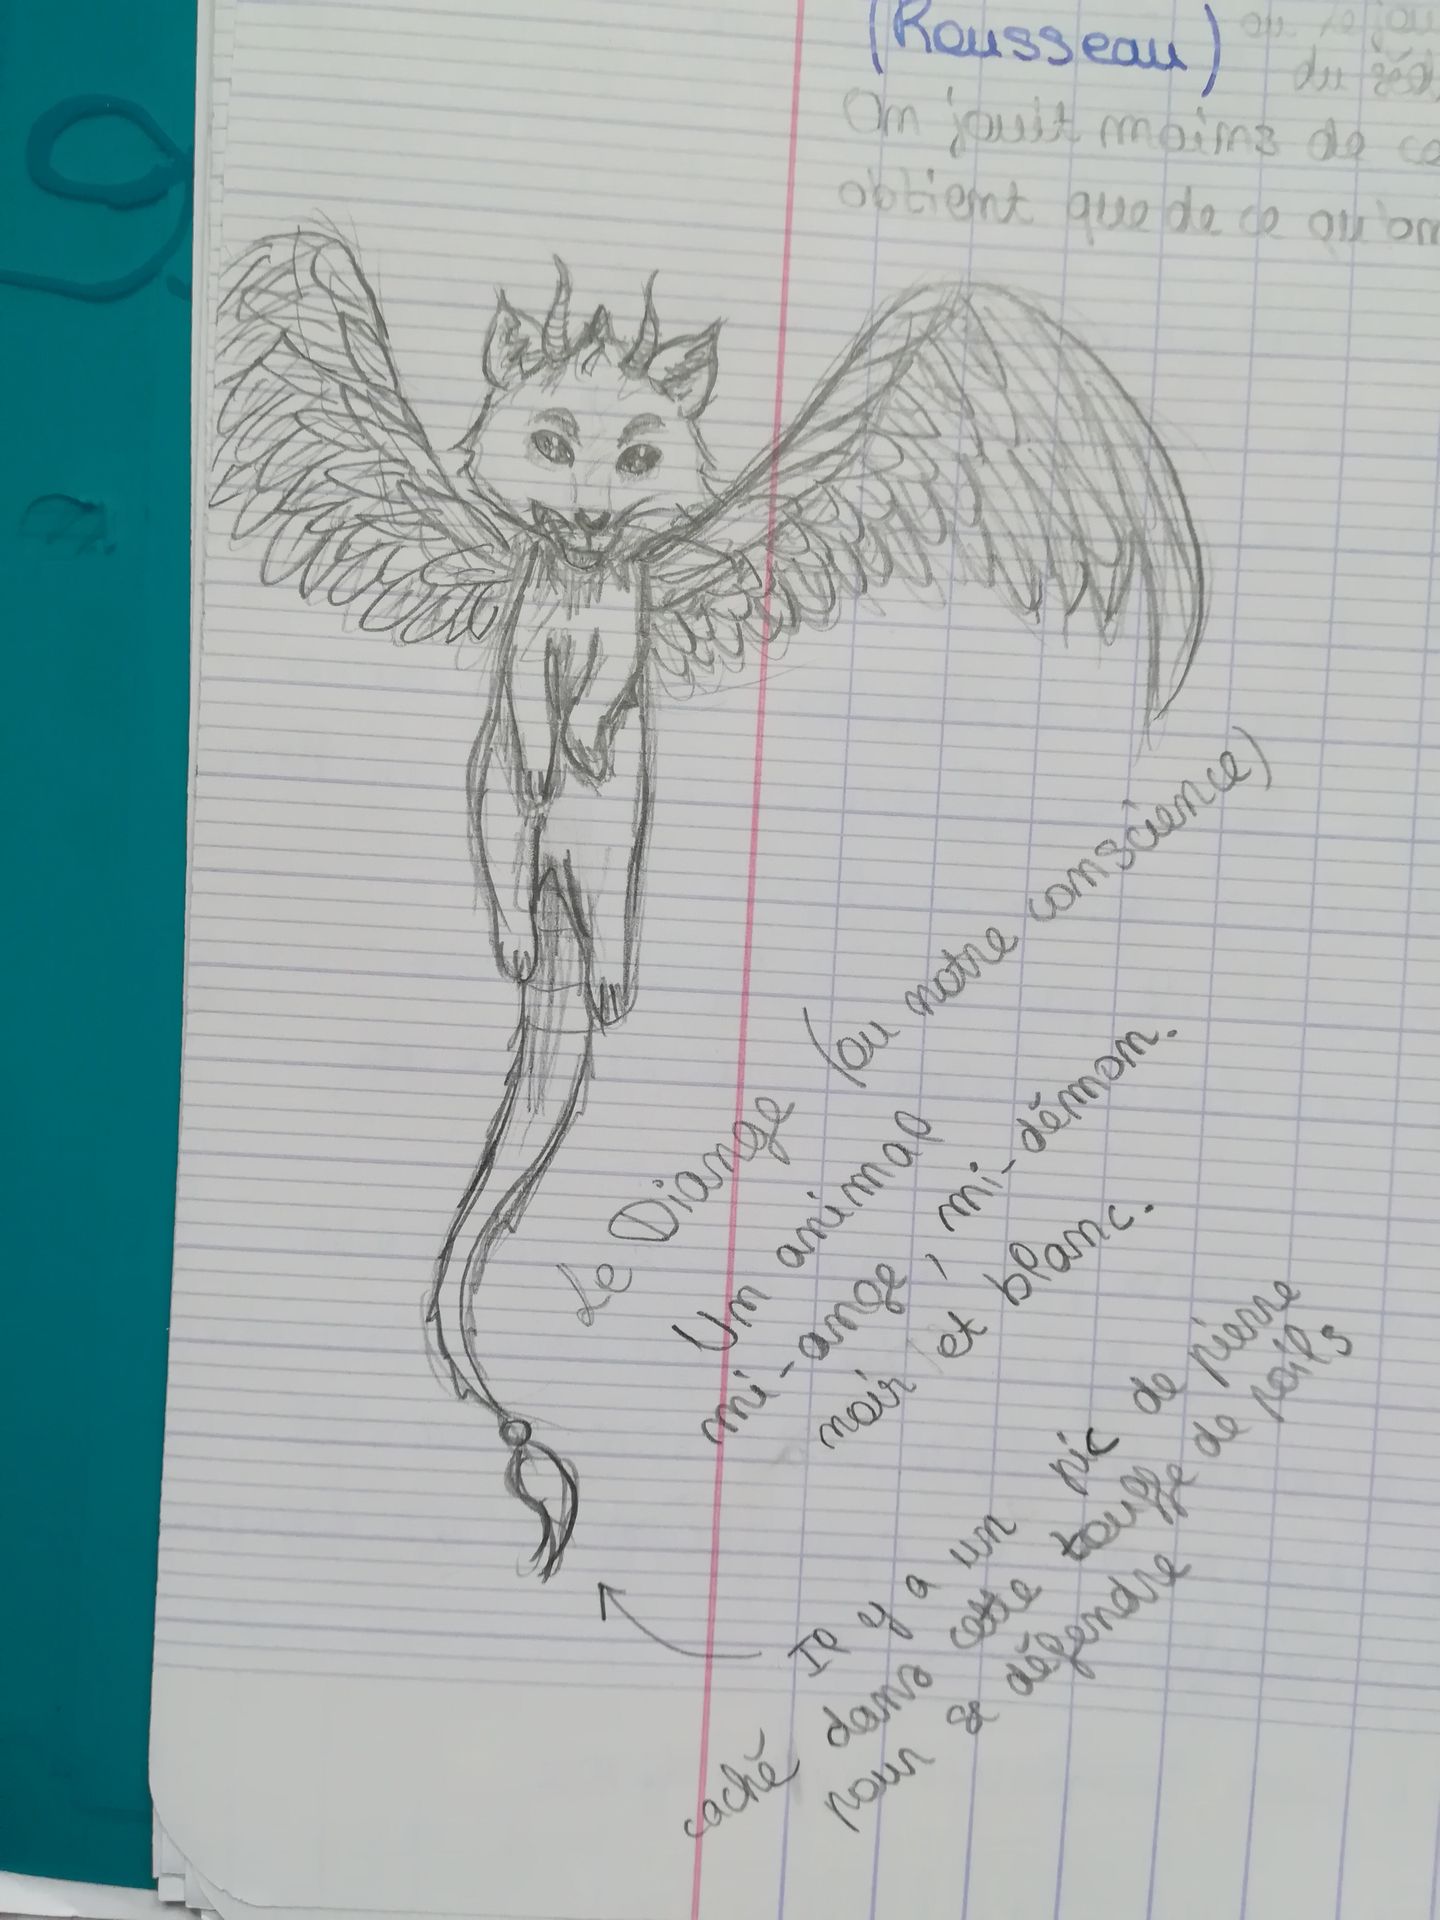 (Rousseau)
On jouit moins de ce
obtient que de ce qu'on
Le Diange (ou notre conscience)
Un animal
mi-ange, mi-démon.
noir et blanc.
Il y a un pic de pierre
caché dans cette touffe de poils
pour se défendre